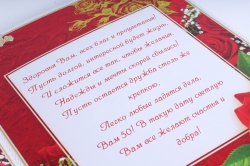 Здоровья Вам, всех благ и процветания!
Пусть долгой, интересной будет жизнь.
И сложится все так, чтобы желания,
Надежды и мечты скорей сбылись!
Пусть остается дружба столь же
крепкою,
Легко любые ладятся дела.
Вам 50! В такую дату светлую
Вам все желают счастья и
добра!